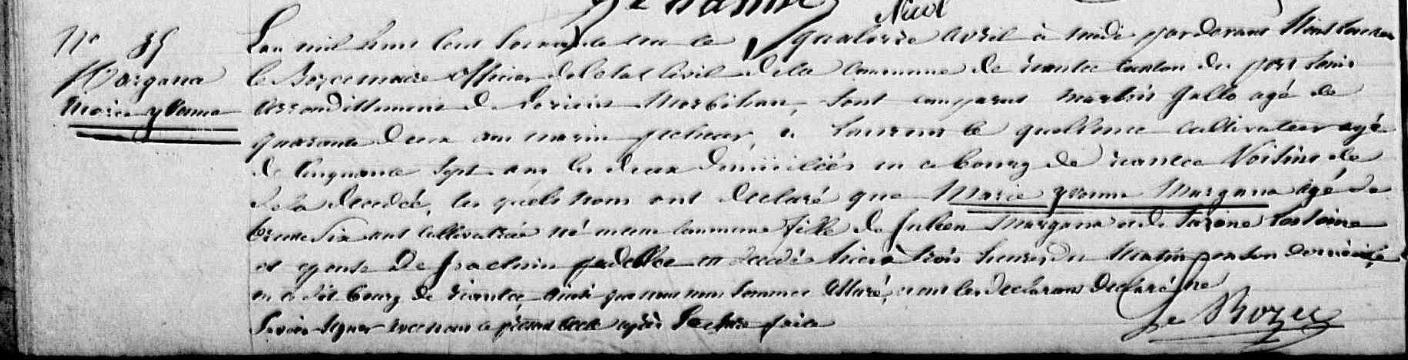 N° 35
Margana
Marie yvonne
L'an mil huit cent soixante un le quatorze avril à midi par devant Nous
le Rozec maire officier de l'etat civil de la commune de riantec canton du port louis
arrondissement de Lorient Morbihan, sont comparus Gallo agé de
quarante deux ans marin pecheur, à Laurent le cultivateur agé
de cinquante sept ans les deux domiciliés en ce bourg de riantec Voisins de
de la decedée, les quels nous ont declaré que Marie yvonne Margana agé de
trente six ans cultivatrice né meme commune fille de Julien Margana et de
et epouse de Joachim en decedé hier à trois heures du Matin en son domicile
en ce dit bourg de riantec ainsi que nous nous sommes assuré, et ont les declarans declaré ne
savoir signer avec nous le présent acte après lecture faite
Le Rozec